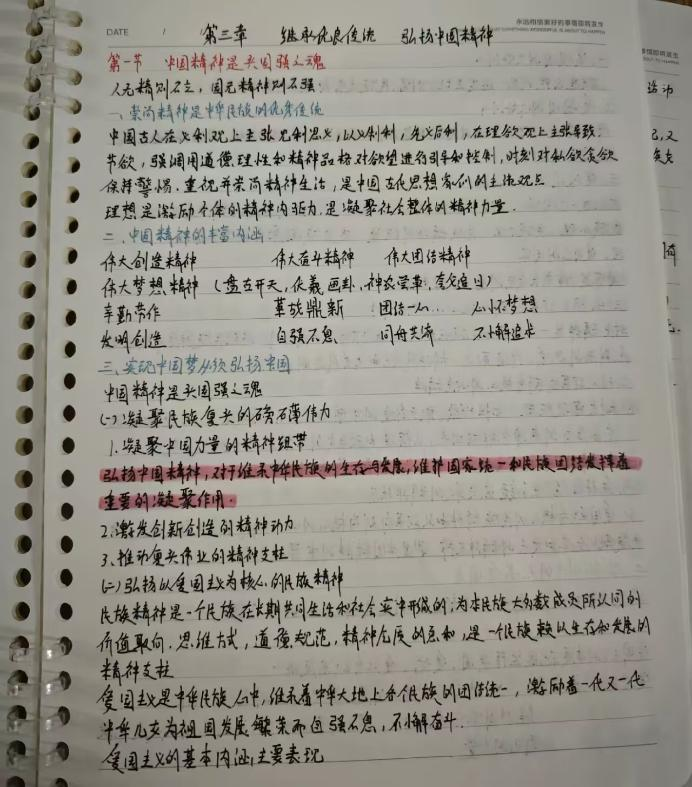 永远相信美好的事情即将发生
DATE / /
第三章 继承优良传统 弘扬中国精神
第一节 中国精神是兴国强之魂
人无精则不立，国无精神则不强
一、崇尚精神是中华民族的优秀传统
中国古人在义利观上主张见利思义，以义制利，先义后利，在理欲观上主张导致
节欲，强调用道德理性和精神品格对欲望进行引导和控制，时刻对私欲贪欲
保持警惕．重视并崇尚精神生活，是中国古代思想家们的主流观点
理想是激励个体的精神内驱力，是凝聚社会整体的精神力量．
二、中国精神的丰富内涵
伟大创造精神 伟大奋斗精神 伟大团结精神
伟大梦想精神（盘古开天，伏羲画卦，神农尝草，夸父追日）
辛勤劳作 革故鼎新 团结一心… 心怀梦想
发明创造 自强不息 同舟共济 不懈追求
三、实现中国梦必须弘扬中国
中国精神是兴国强之魂
(一)凝聚民族复兴的磅礴伟力
1.凝聚中国力量的精神纽带
弘扬中国精神，对于维系中华民族的生存与发展，维护国家统一和民族团结发挥着
重要的凝聚作用．
2.激发创新创造的精神动力
3、推动复兴伟业的精神支柱
(二)弘扬以爱国主义为核心的民族精神
民族精神是一个民族在长期共同生活和社会实中形成的，为本民族大多数成员所认同的
价值取向．思维方式，道德规范，精神气质的总和，是一个民族赖以生存和发展的
精神支柱
爱国主义是中华民族心中，维系着中华大地上各个民族的团结统一，激励着一代又一代
中华儿女为祖国发展繁荣而自强不息，不懈奋斗．
爱国主义的基本内涵，主要表现